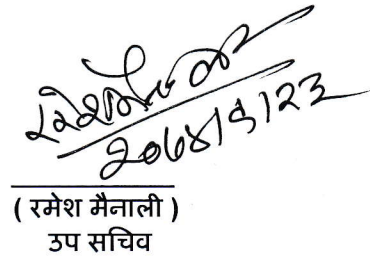 २०७४।९।२३
( रमेश मैनाली )
उप सचिव